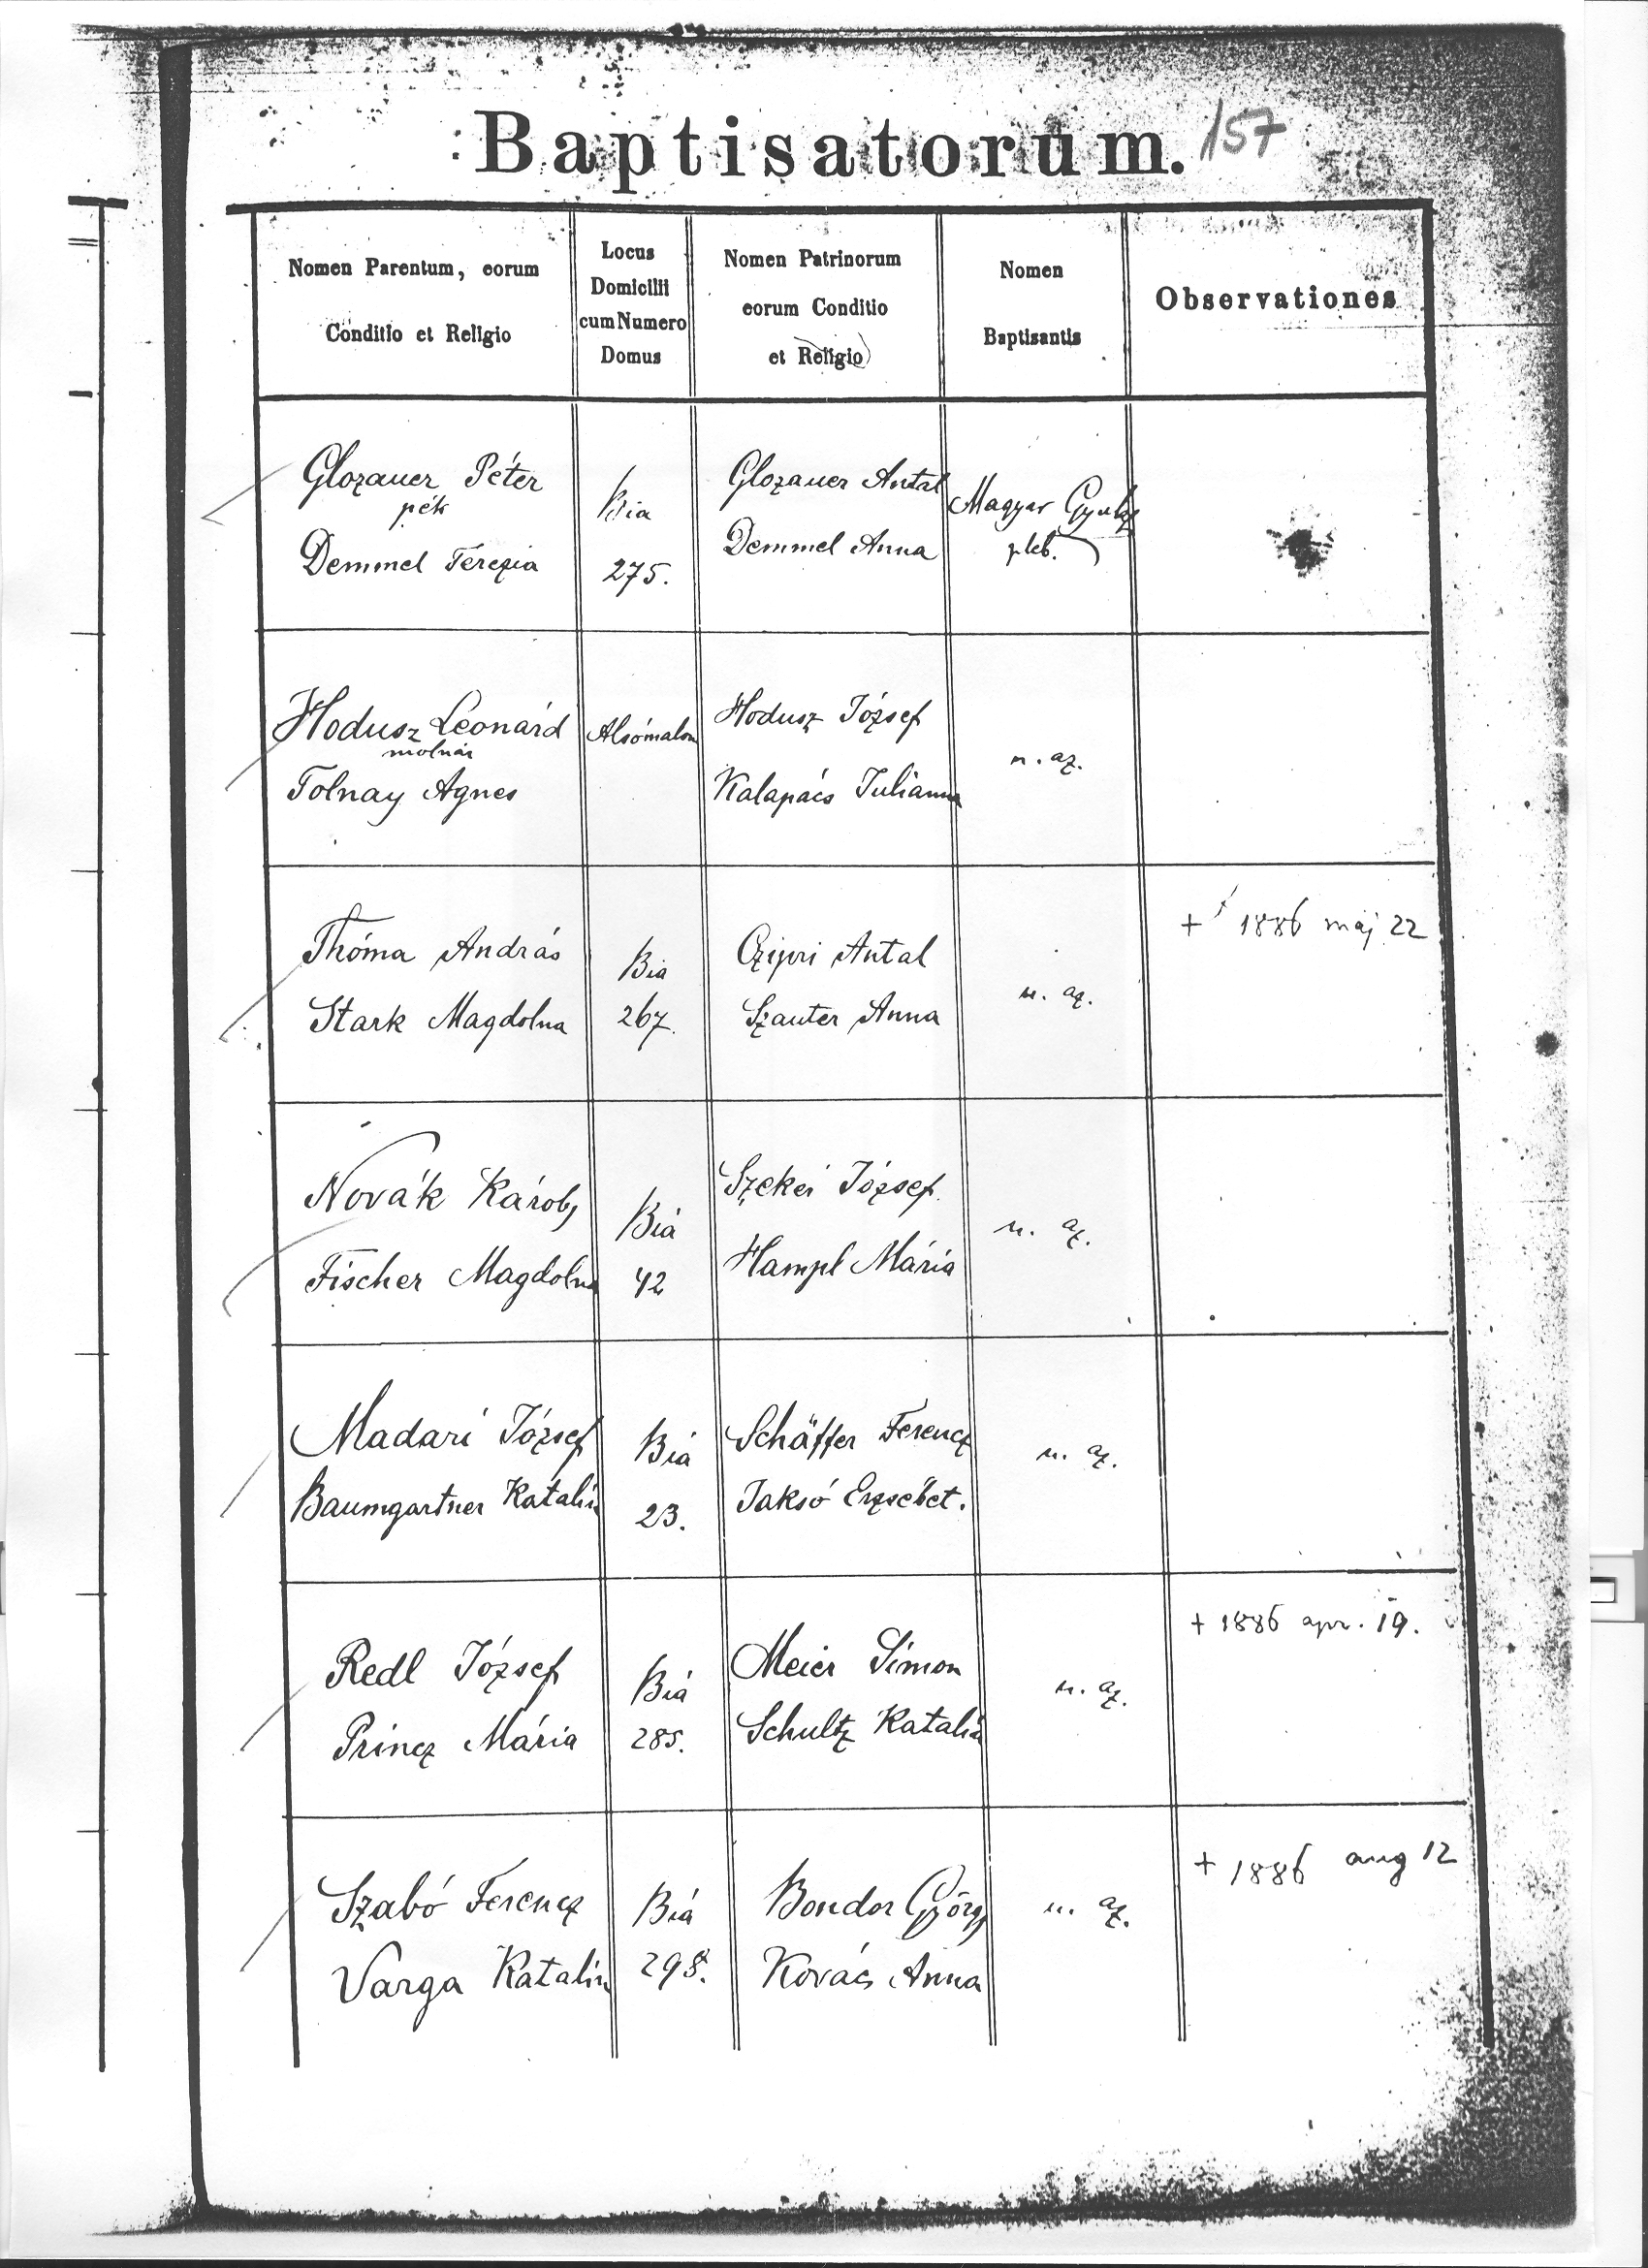 Baptisatorum. 157
Nomen Parentum, eorum
Conditio et Religio
Locus
Domicilii
cum Numero
Domus
Nomen Patrinorum
eorum Conditio
et Religio
Nomen
Baptisantis
Observationes
Glozauer Péter
pék
Demmel Terézia
Bia
275.
Glozauer Antal
Demmel Anna
Magyar Gyula
pleb.
Hodusz Leonárd
molnár
Tolnay Agnes
Alsómalom
Hodusz József
Kalapács Julianna
u. az.
Thóma András
Stark Magdolna
Bia
267.
Czipri Antal
Szauter Anna
u. az.
+ 1886 máj 22
Novák Károly
Fischer Magdolna
Bia
42
Szekei József
Hampl Mária
u. az.
Madari József
Baumgartner Katalin
Bia
23.
Schäffer Ferencz
Jaksó Erzsébet.
u. az.
Redl József
Princz Mária
Bia
285.
Meier Simon
Schultz Katalin
u. az.
+ 1886 apr. 19.
Szabó Ferencz
Varga Katalin
Bia
298.
Bondor György
Kovács Anna
u. az.
+ 1886 aug 12